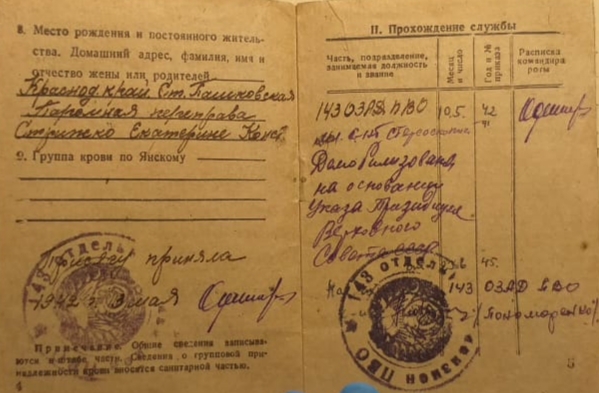 8. Место рождения и постоянного жительства. Домашний адрес, фамилия, имя и
отчество жены или родителей
Краснод. край Ст. Пашковская
Паромная переправа
Стрижко Екатерине Конст.
9. Группа крови по Янскому
Присягу приняла
1942 г. 3 мая
148 ОТДЕЛЬ
Примечание. Общие сведения записываются в штабе части. Сведения о групповой принадлежности крови вносятся санитарной частью.
4
II. Прохождение службы
Часть, подразделение, занимаемая должность и звание
Месяц и число
Год и № приказа
Расписка командира роты
143 ОЗАД ПВО 10.5. 42
Демобилизована
на основании
Указа Президиума
Верховного
Совета СССР
45.
143 ОЗАД ПВО
148 ОТДЕЛЬ
ДИВИЗИОН ПВО
/Пономаренко/
5